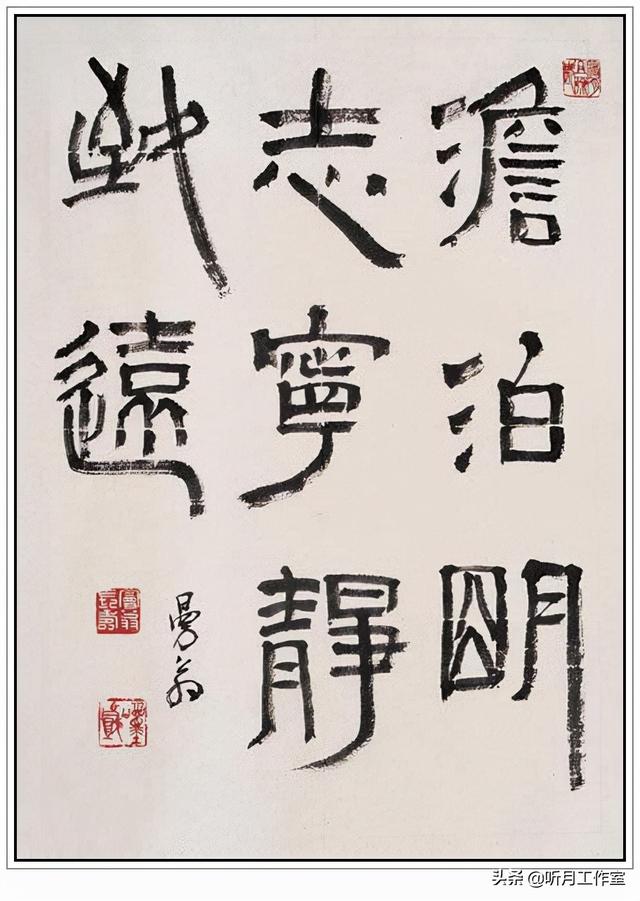 澹泊朙
志寧靜
致遠
曼翁
头条 @听月工作室